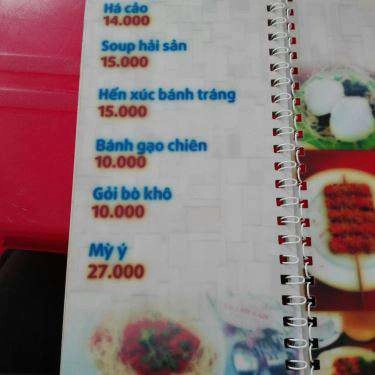 Há cảo
14.000
Soup hải sản
15.000
Hến xúc bánh tráng
15.000
Bánh gạo chiên
10.000
Gỏi bò khô
10.000
Mỳ ý
27.000